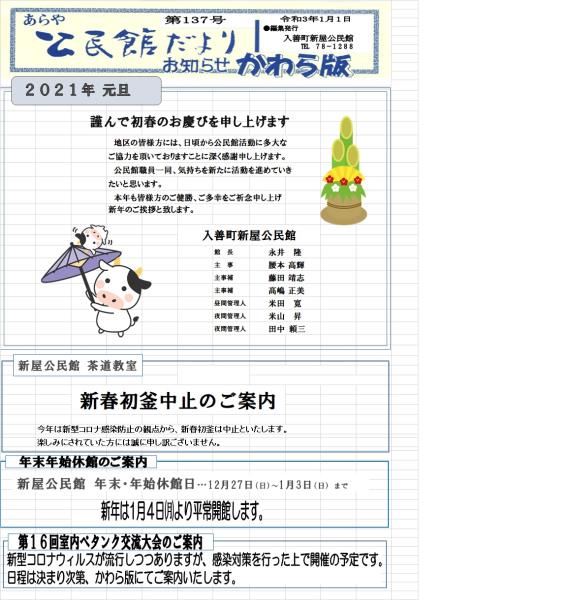 あらや
第137号
令和3年1月1日
公民館だより
●編集発行
入善町新屋公民館
TEL 78-1288
お知らせ かわら版
2021年 元旦
謹んで初春のお慶びを申し上げます
地区の皆様方には、日頃から公民館活動に多大な
ご協力を頂いておりますことに深く感謝申し上げます。
公民館職員一同、気持ちを新たに活動を進めていき
たいと思います。
本年も皆様方のご健勝、ご多幸をご祈念申し上げ
新年のご挨拶と致します。
入善町新屋公民館
館 長 永井 隆
主 事 腰本 高輝
主事補 藤田 靖志
主事補 高嶋 正美
昼間管理人 米田 寛
夜間管理人 米山 昇
夜間管理人 田中 頼三
新屋公民館 茶道教室
新春初釜中止のご案内
今年は新型コロナ感染防止の観点から、新春初釜は中止といたします。
楽しみにされていた方には誠に申し訳ございません。
年末年始休館のご案内
新屋公民館 年末・年始休館日…12月27日(日)~1月3日(日) まで
新年は1月4日㈪より平常開館します。
第16回室内ペタンク交流大会のご案内
新型コロナウィルスが流行しつつありますが、感染対策を行った上で開催の予定です。
日程は決まり次第、かわら版にてご案内いたします。